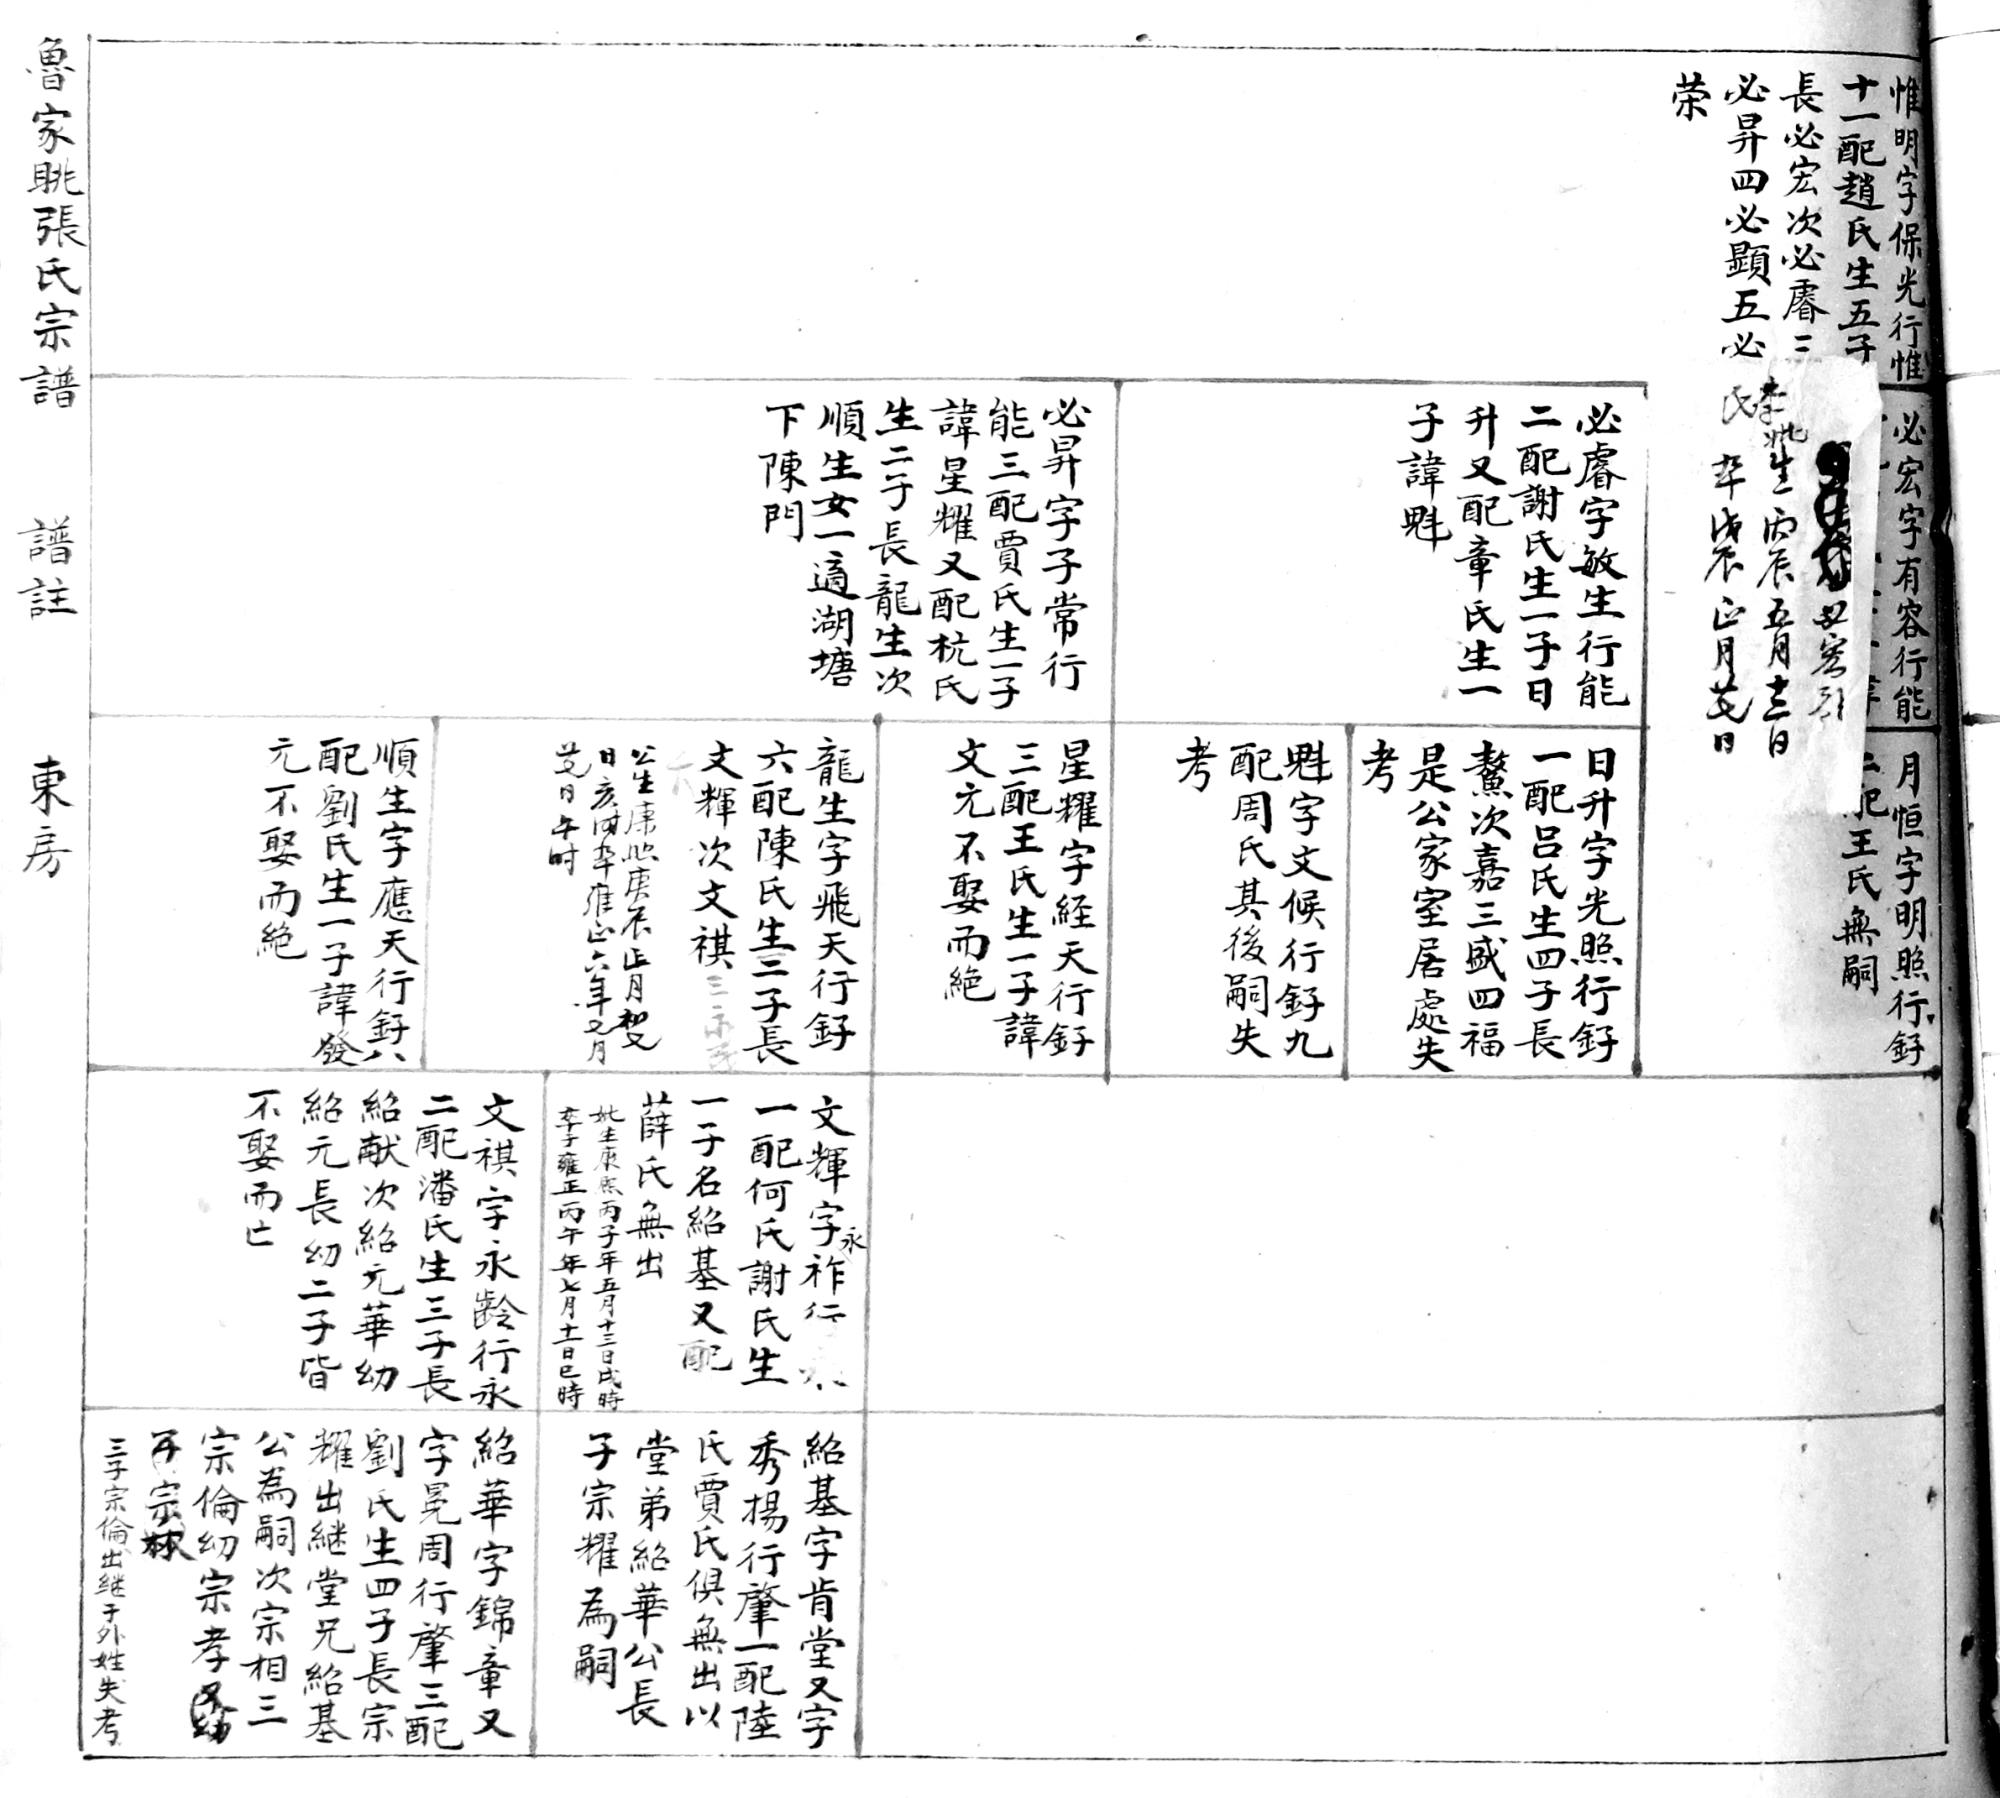 惟明字保光行惟
十一配趙氏生五子
長必宏次必睿三
必昇四必顯五必
荣
必宏字有容行能
月恒字明照行釨
二配王氏無嗣
妣生丙辰五月十三日
氏卒戊辰正月廿七日
必睿字敏生行能
二配謝氏生一子日
升又配章氏生一
子諱魁
必昇字子常行
能三配賈氏生一子
諱星耀又配杭氏
生二子長龍生次
順生女一適湖塘
下陳門
日升字光照行釨
一配呂氏生四子長
鰲次嘉三盛四福
是公家室居處失
考
魁字文候行釨九
配周氏其後嗣失
考
星耀字経天行釨
三配王氏生一子諱
文元不娶而絶
龍生字飛天行釨
六配陳氏生二子長
文輝次文祺
公生康熙庚辰正月初七
日亥時卒雍正六年七月
廿七日午时
順生字應天行釨八
配劉氏生一子諱發
元不娶而絶
文輝字永祚行永
一配何氏謝氏生
一子名紹基又配
薛氏無出
妣生康熙丙子年五月十三日戌時
卒于雍正丙午年七月十一日巳時
文祺字永齡行永
二配潘氏生三子長
紹献次紹元華幼
紹元長幼二子皆
不娶而亡
紹基字肯堂又字
秀揚行肇一配陸
氏賈氏俱無出以
堂弟紹華公長
子宗耀為嗣
紹華字錦章又
字冕周行肇三配
劉氏生四子長宗
耀出継堂兄紹基
公為嗣次宗相三
宗倫幼宗孝
宗
三子宗倫出継于外姓失考
魯家眺張氏宗譜
譜註
東房